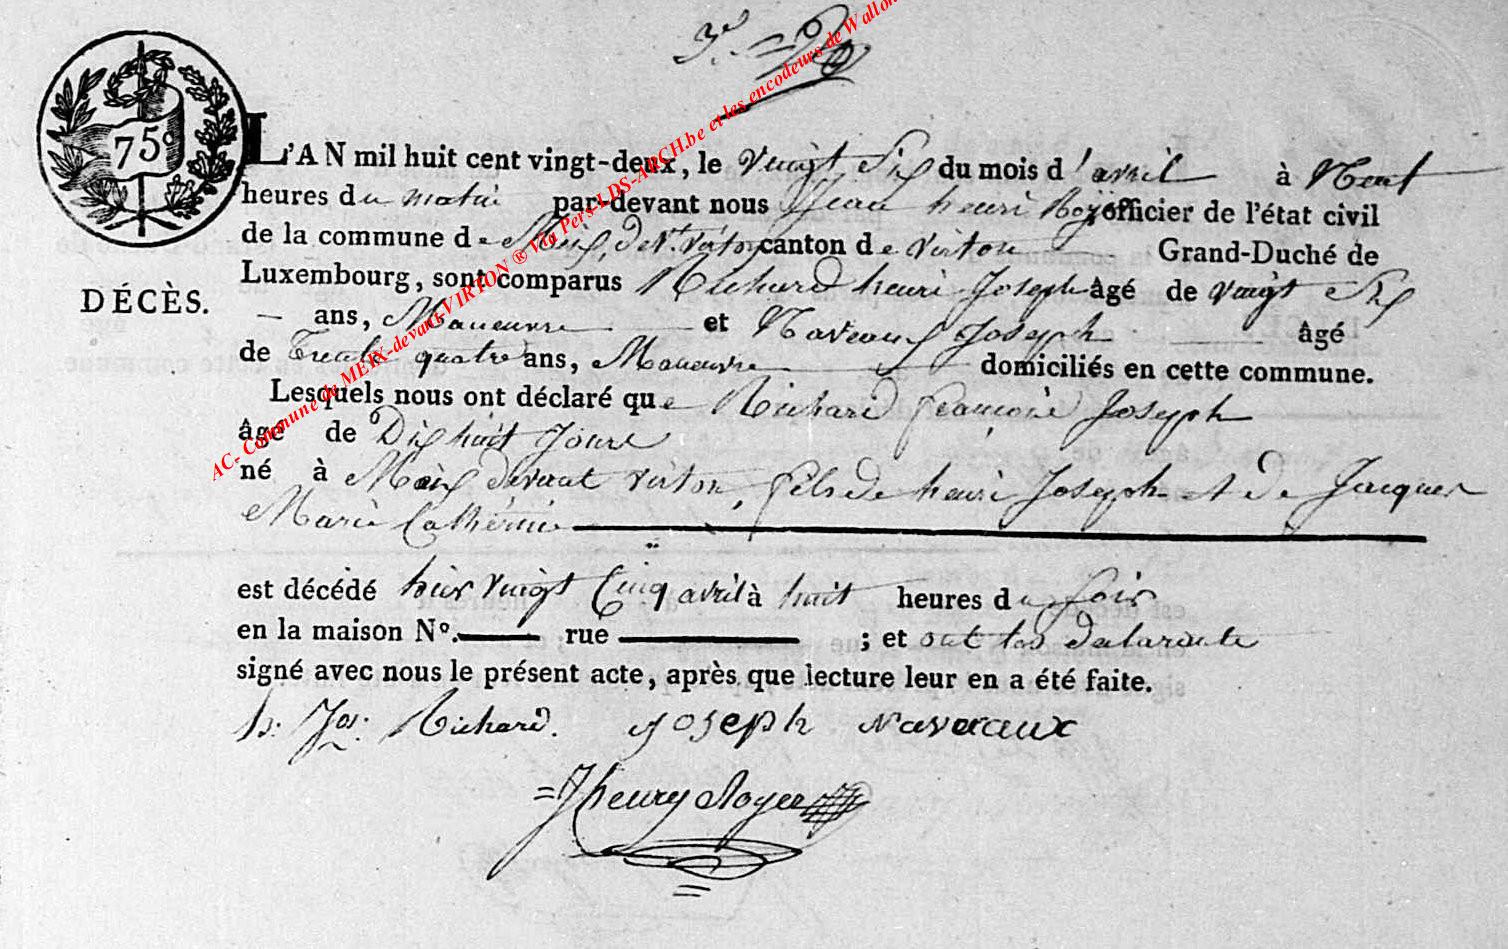 3e.
75c
L'AN mil huit cent vingt-deux, le vingt Six du mois d'avril à Neuf
heures du matin par-devant nous Jean henri Royer officier de l'état civil
de la commune de Meix, devt. virton canton de virton Grand-Duché de
Luxembourg, sont comparus Richard henri Joseph âgé de vingt Six
DÉCÈS.
ans, Maneuvre et Naveaux Joseph âgé
de Trente quatre ans, Maneuvre domiciliés en cette commune.
Lesquels nous ont déclaré que Richard françois Joseph
âgé de Dix huit Jours
né à Meix devant virton, fils de henri Joseph et de Jacques
Marie Catherine
est décédé hier vingt Cinq avril à huit heures du Soir
en la maison No. rue ; et ont les delarants
signé avec nous le présent acte, après que lecture leur en a été faite.
h: Jos: Richard. Joseph Naveaux
Jhenry Royer
AC- Commune de MEIX-devant-VIRTON ® Via Pers-LDS-ARCH.be et les encodeurs de Wallon